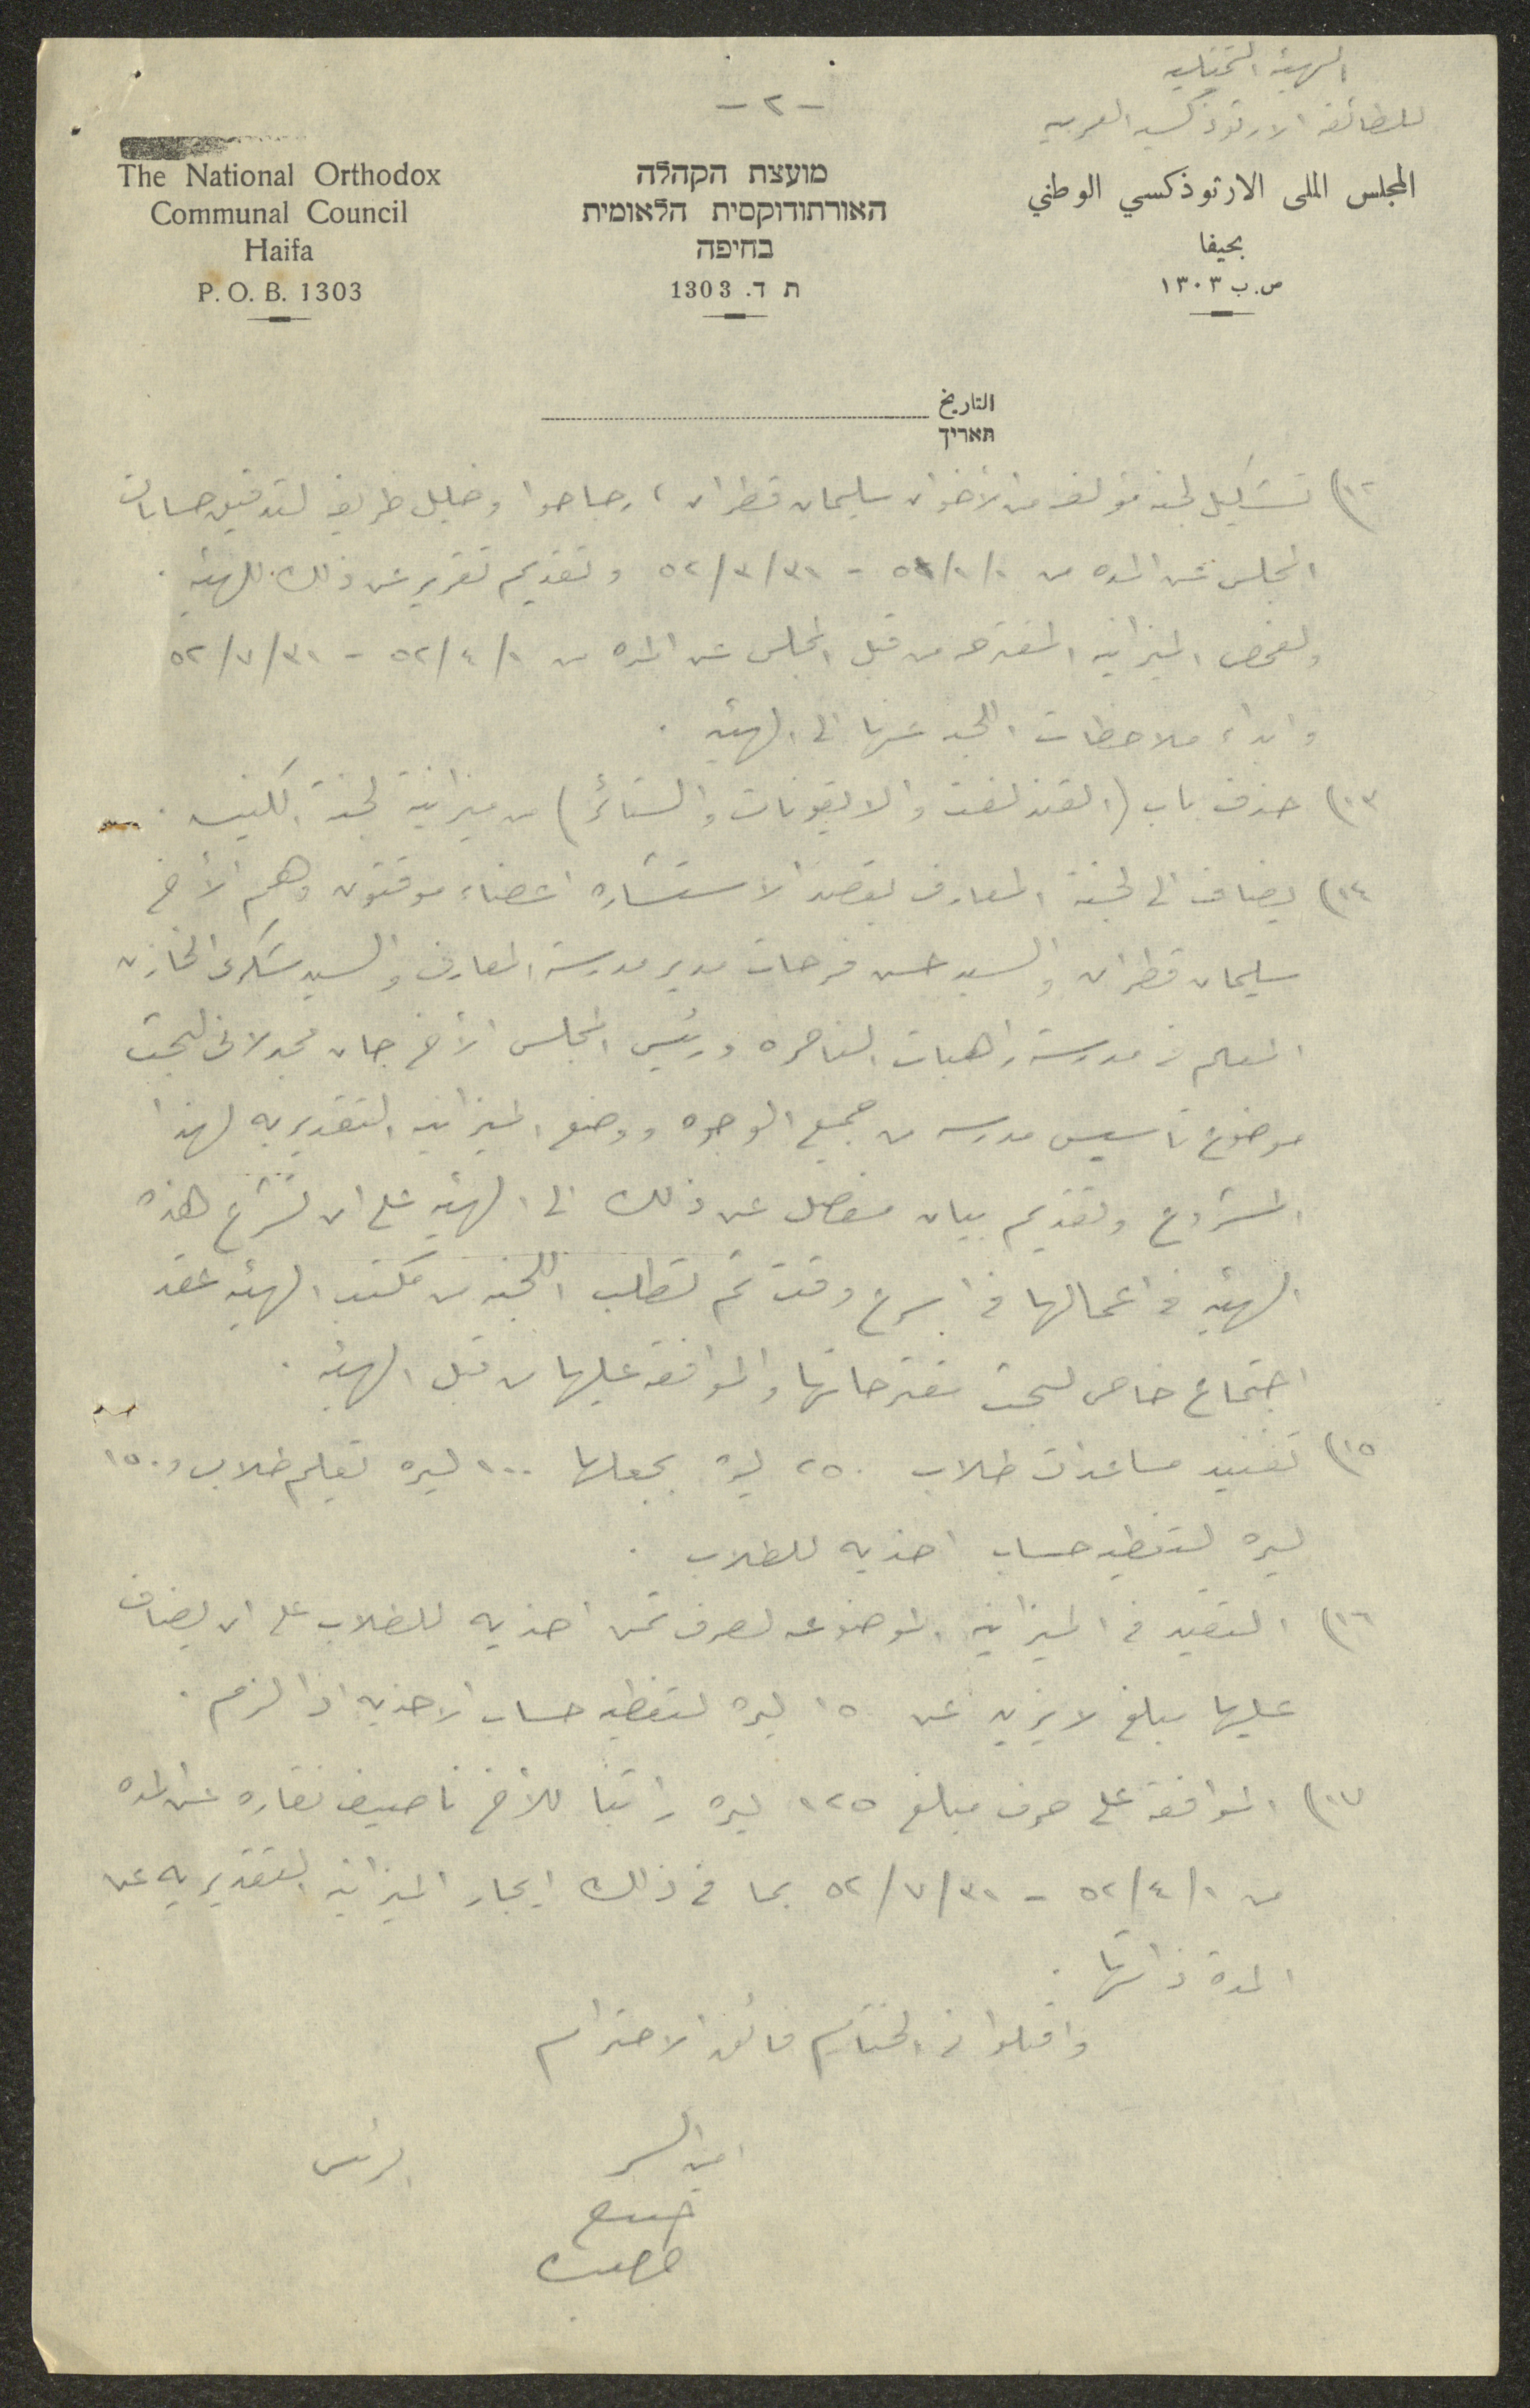 الهيئة التمثيلية
للطائفة الارثوذكسية العربية
- ٢ -
The National Orthodox
Communal Council
Haifa
P. O. B. 1303
מועצת הקהלה
האורתודוקסית הלאומית
בחיפה
ת ד. 1303
المجلس الملي الارثوذكسي الوطني
بحيفا
ص. ب ١٣٠٣
التاريخ
תאריך
١٢) تشكيل لجنة مؤلفة من الأخوان سليمان قطران ، رجا حوا وخليل طريف لتدقيق حسابات
المجلس عن المده من - ٥٢/٣/٣١ وتقديم تقرير عن ذلك للهيئه .
ولفحص الميزانيه المقترحه من قبل المجلس عن المده من ٥٢/٤/١ - ٥٢/٧/٣١
وابداء ملاحظات اللجنه عنها الى الهيئه .
١٣) حذف باب (القندلفت والايقونات والستائر) من ميزانية لجنة الكنيسه .
١٤) يضاف الى لجنة المعارف بقصد الاستشاره اعضاء موقتون وهم الأخ
سليمان قطران والسيد حسن فرحات مدير مدرسة المعارف والسيد شكري الخازن
المعلم في مدرسة راهبات الناصره ورئيس المجلس الأخ جان مجدلاني لبحث
موضوع تأسيس مدرسه من جميع الوجوه ووضع الميزانيه التقديريه لهذا
المشروع وتقديم بيان مفصل عن ذلك الى الهيئه على ان تشرع هذه
الهيئه في اعمالها في اسرع وقت ثم تطلب اللجنه من مكتب الهيئه عقد
اجتماع خاص لبحث مقترحاتها والموافقه عليها من قبل الهيئه .
١٥) تفنيد مساعدات طلاب ٢٥٠ ليره بجعلها ١٠٠ ليره تعليم طلاب و ١٥٠
ليره لتغطية حساب احذيه للطلاب .
١٦) التقيد في الميزانيه الموضوعه لصرف ثمن احذيه للطلاب على ان يضاف
عليها مبلغ لا يزيد عن ١٥٠ ليره لتغطيه حساب الاحذيه اذا لزم .
١٧) الموافقة على صرف مبلغ ١٢٥ ليره راتبا للأخ ناصيف نقاره عن المده
من ٥٢/٤/١ - ٥٢/٧/٣١ بما في ذلك الميزانيه التقديريه عن
المدة ذاتها .
واقبلوا في الختام فائق الاحترام
امين السر
الرئيس